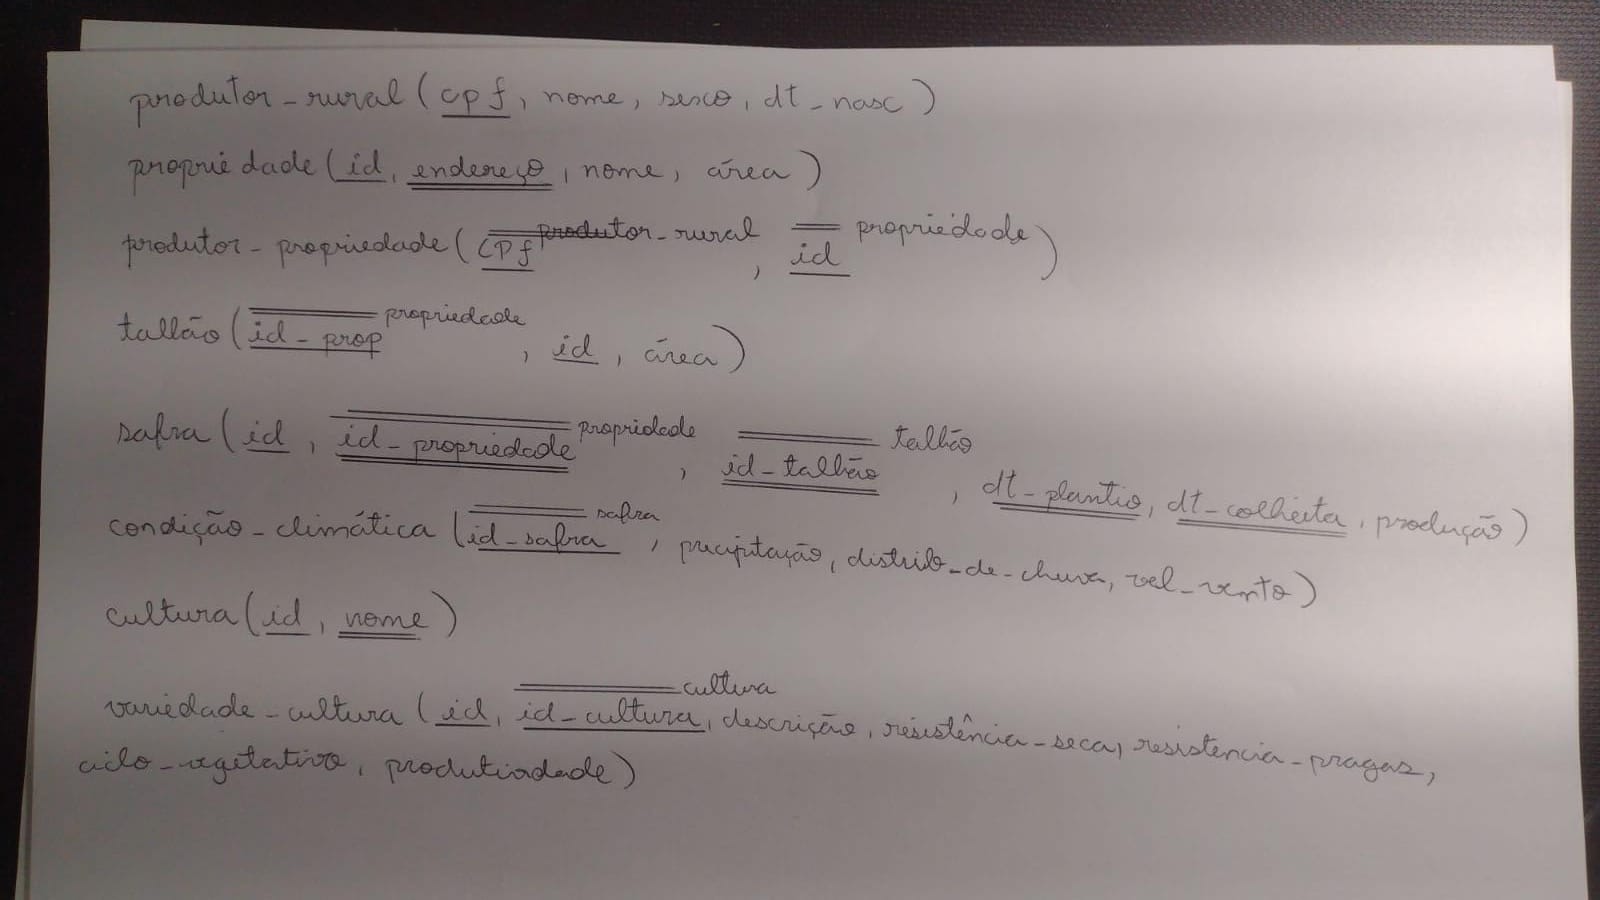 produtor-rural (cpf, nome, sexo, dt-nasc)
propriedade (id, endereço, nome, área)
produtor-propriedade (cpf produtor-rural, id propriedade)
talhão (id-prop propriedade, id, área)
safra (id, id-propriedade propriedade, id-talhão talhão, dt-plantio, dt-colheita, produção)
condição-climática (id-safra safra, precipitação, distrib-de-chuva, vel-vento)
cultura (id, nome)
variedade-cultura (id, id-cultura cultura, descrição, resistência-seca, resistencia-pragas,
ciclo-vegetativo, produtividade)